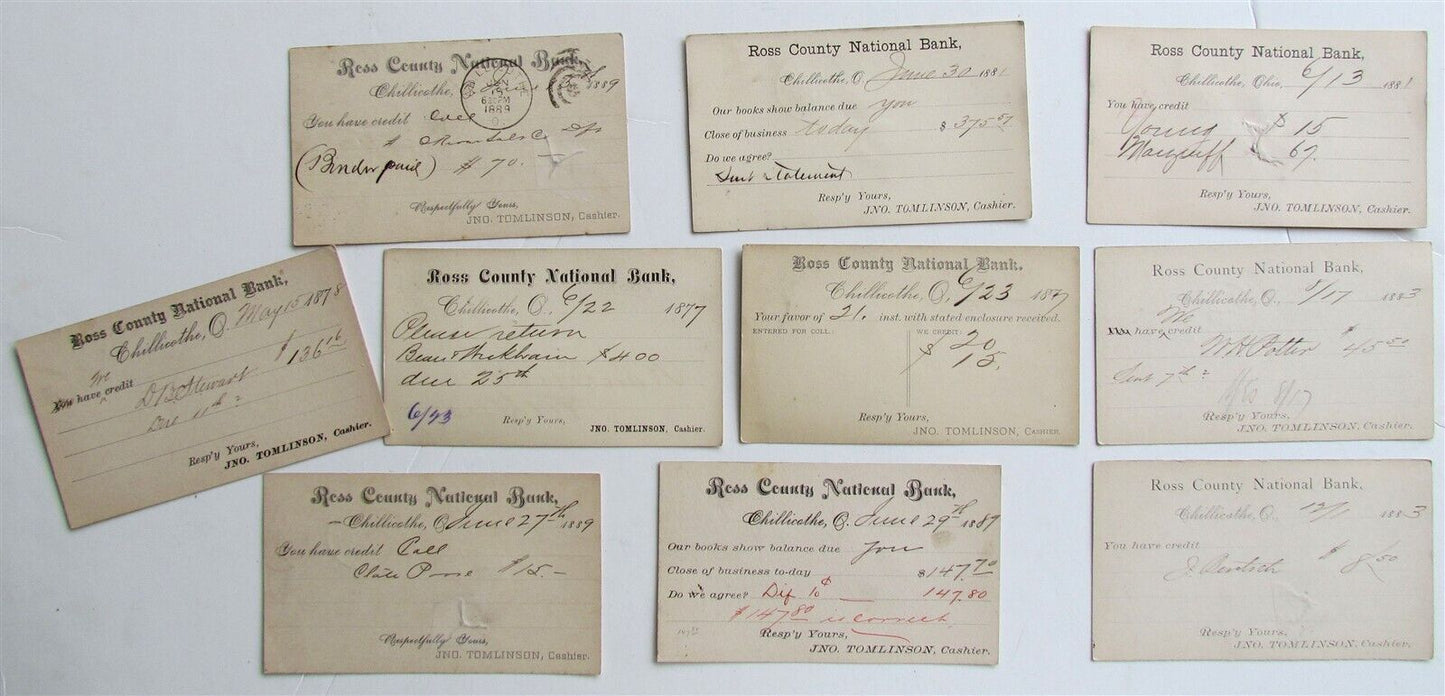 Ross County National Bank,
Chillicothe, 1889
JAN
15
6 PM
1889
O.
You have credit Coll
(Bender paid) $ 70.
Respectfully Yours,
JNO. TOMLINSON, Cashier.
Ross County National Bank,
Chillicothe, O. June 30 1881
Our books show balance due you
Close of business today $ 375.07
Do we agree?
Sent statement
Resp'y Yours,
JNO. TOMLINSON, Cashier.
Ross County National Bank,
Chillicothe, Ohio, 6/13 1881
You have credit
Young $ 15
67.
Resp'y Yours,
JNO. TOMLINSON, Cashier.
Ross County National Bank,
Chillicothe, O. May 15 1878
We
You have credit $ 136 16
D B Stewart
Due 11th?
Resp'y Yours,
JNO. TOMLINSON, Cashier.
Ross County National Bank,
Chillicothe, O., 6/22 1877
Please return
$400
due 25th
6/23
Resp'y Yours,
JNO. TOMLINSON, Cashier.
Ross County National Bank,
Chillicothe, O., 6/23 1877
Your favor of 21. inst. with stated enclosure received.
ENTERED FOR COLL:
WE CREDIT:
$ 20
15.
Resp'y Yours,
JNO. TOMLINSON, Cashier.
Ross County National Bank,
Chillicothe, O., 8/17 1883
We
You have credit
W H Potter $ 45 50
Sent 7th?
8/17
Resp'y Yours,
JNO. TOMLINSON, Cashier.
Ross County National Bank,
Chillicothe, O. June 27th 1889
You have credit Coll
$15.—
Respectfully Yours,
JNO. TOMLINSON, Cashier.
Ross County National Bank,
Chillicothe, O. June 29th 1887
Our books show balance due you
Close of business to-day $147.70
Do we agree? Dif 10¢ — 147.80
$147.80 is correct
Resp'y Yours,
JNO. TOMLINSON, Cashier.
Ross County National Bank,
Chillicothe, O., 12/1 1883
You have credit
$ 8 50
Resp'y Yours,
JNO. TOMLINSON, Cashier.